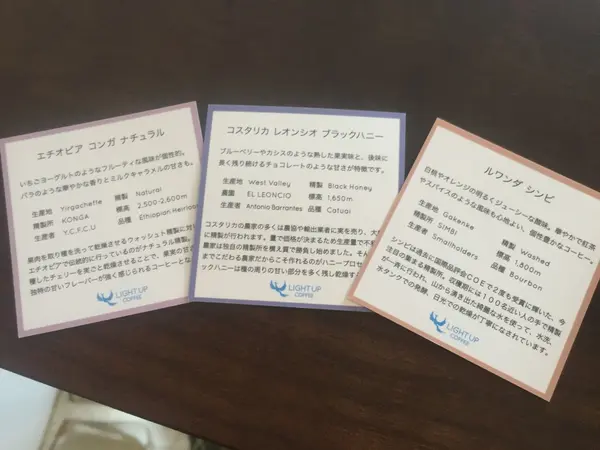 エチオピア コンガ ナチュラル
いちごヨーグルトのようなフルーティな風味が個性的。
バラのような華やかな香りとミルクキャラメルの甘さも。
生産地 Yirgacheffe 精製 Natural
精製所 KONGA 標高 2,500-2,600m
生産者 Y.C.F.C.U 品種 Ethiopian Heirloom
果肉を取り種を洗って乾燥させるウォッシュト精製に対し
エチオピアで伝統的に行っているのがナチュラル精製。
種したチェリーを実ごと乾燥させることで、果実の甘
独特の甘いフレーバーが強く感じられるコーヒーとな
LIGHT UP
COFFEE
コスタリカ レオンシオ ブラックハニー
ブルーベリーやカシスのような熟した果実味と、後味に
長く残り続けるチョコレートのような甘さが特徴です。
生産地 West Valley 精製 Black Honey
農園 EL LEONCIO 標高 1,650m
生産者 Antonio Barrantes 品種 Catuai
コスタリカの農家の多くは農協や輸出業者に実を売り、大
に精製が行われます。量で価格が決まるため生産量で不
農家は独自の精製所を構え質で勝負し始めました。そん
までこだわる農家だからこそ作れるのがハニープロセ
ックハニーは種の周りの甘い部分を多く残し乾燥する
LIGHT UP
COFFEE
ルワンダ シンビ
白桃やオレンジの明るくジューシーな酸味。華やかで紅茶
やスパイスのような風味も心地よい、個性豊かなコーヒー。
生産地 Gakenke 精製 Washed
精製所 SIMBI 標高 1,800m
生産者 Smallholders 品種 Bourbon
シンビは過去に国際品評会COEで2度も受賞に輝いた、今
注目の集まる精製所。収穫期には100名近い人の手で精製
が一斉に行われ、山から湧き出た綺麗な水を使って、水洗、
水タンクでの発酵、日光での乾燥が丁寧になされています。
LIGHT UP
COFFEE